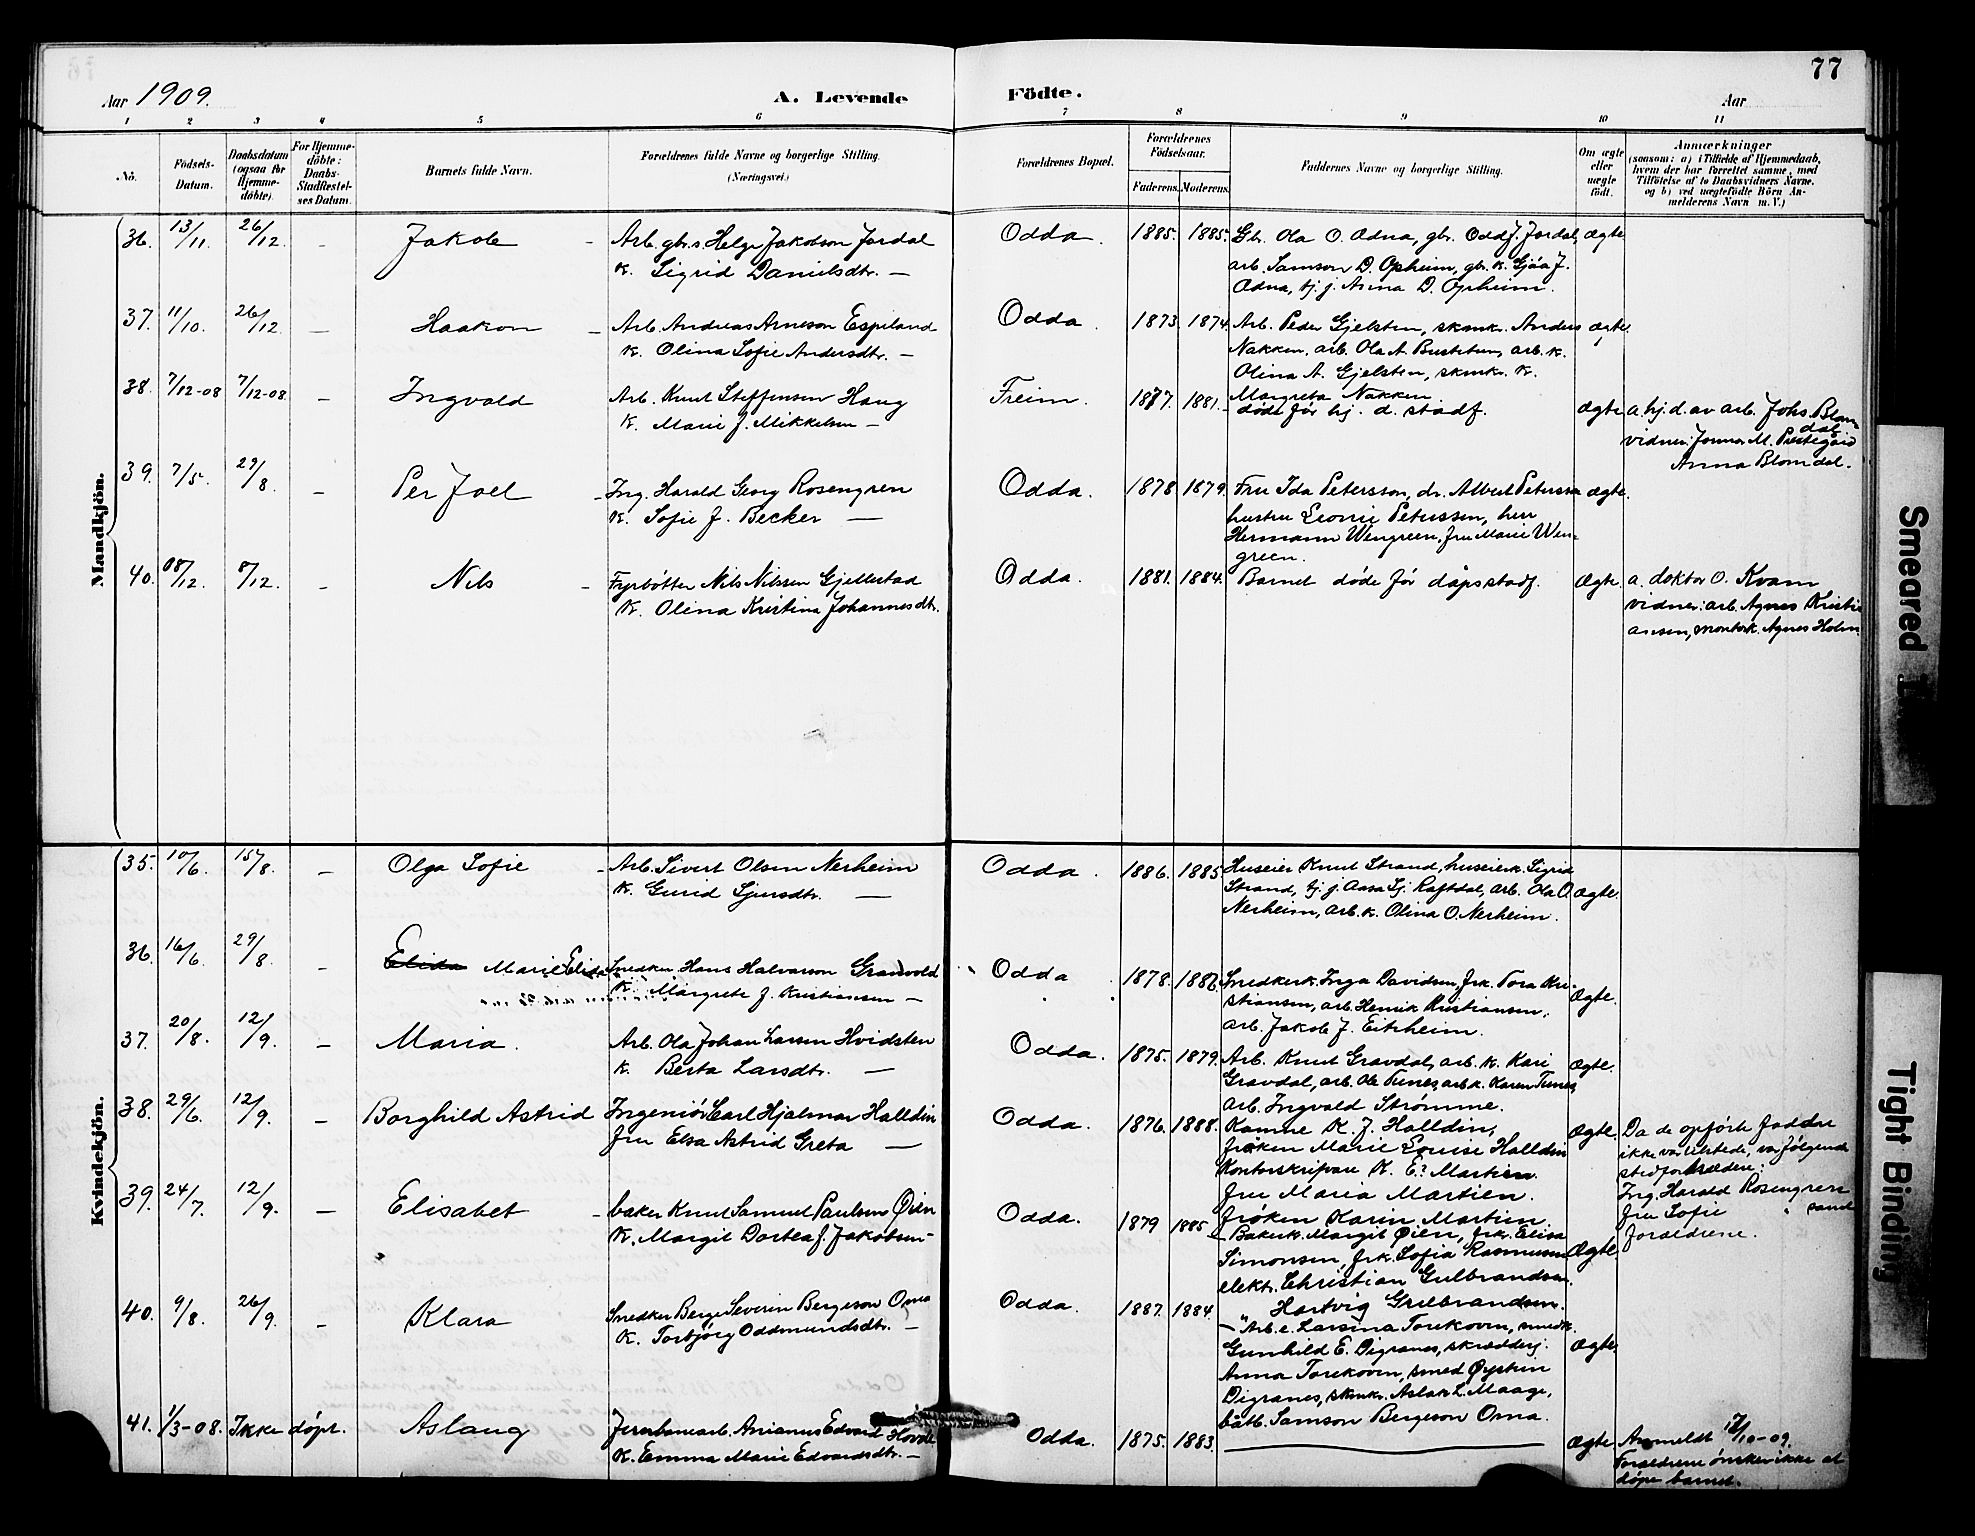 77
Aar 1909.
A. Levende
Födte.
Aar
1 2 3 4 5 6 7 8 9 10 11
No. Födsels-Datum. Daabsdatum (ogsaa for Hjemme-döbte). For Hjemme-döbte: Daabs-Stadfæstel-ses Datum. Barnets fulde Navn. Forældrenes fulde Navne og borgerlige Stilling. (Næringsvei.) Forældrenes Bopæl. Forældrenes Födselsaar. Faderens. Moderens. Faddernes Navne og borgerlige Stilling. Om ægte eller uægte födt. Anmærkninger (saasom: a) i Tilfælde af Hjemmedaab, hvem der har forrettet samme, med Tilföielse af to Daabsvidners Navne, og b) ved uægtefödte Börn An-melderens Navn m. V.)
Mandkjön.
36. 13/11. 26/12. - Jakob - Arb. gbr.s Helge Jakobson Jordal Odda. 1885. 1885. Gbr. Ola O. Odna, gbr. Odd J. Jordal, ægte
K. Sigrid Danielsdtr. — arb. Samson D. Opheim, gbr. k. Gjøa J.
Odna, tj. j. Anna D. Opheim.
37. 11/10. 26/12. - Haakon - Arb. Andreas Arneson Espeland Odda. 1873. 1874. Arb. Peder Gjelsten, skmk. Anders ægte.
K. Olina Sofie Andersdtr. — Nakken, arb. Ola A. Bustetun, arb. k.
Olina A. Gjelsten, skmk. k.
Margreta Nakken.
38. 7/12-08 7/12-08. - Ingvald Arb. Knut Steffensen Haug Freim. 1877. 1881. døde før hj. d. stadf. ægte a. hj. d. av arb. Johs. Blomdal
K. Marie J. Mikkelsen — vidner: Jonna M. Prestegård
Anna Blomdal.
39. 7/5. 29/8. - Per Joel - Ing. Harald Georg Rosengren Odda. 1878 1879. Fru Ida Petersson, dr. Albert Petersson ægte.
K. Sofie J. Becker — hustru Leonie Peterssen, herr
Hermann Wengreen, fru Marie Wen-
green.
40. 08/12. 8/12. - Nils - Fyrbøtter Nils Nilsen Gjellestad Odda. 1881. 1884. Barnet døde før dåpsstadf. Ægte. a. doktor O. Kvam
K. Olina Kristina Johannesdtr. vidner: arb. Agnes Kristi
ansen, montørk. Agnes Holm
Kvindekjön.
35. 10/6. 15/8. - Olga Sofie - Arb. Sivert Olsen Nerheim Odda. 1886. 1885 Huseier Knut Strand, huseierk. Sigrid
K. Gurid Sjursdtr. — Strand, tj. j. Aasa Sj. Raftdal, arb. Ola O. Ægte.
Nerheim, arb. k. Olina O. Nerheim.
36. 16/6. 29/8. - Elida Marie Elida Snedker Hans Halvarson Granvold Odda 1878. 1886. Snedkerk. Inga Davidsen, frk. Tora Kri-
K. Margrete J. Kristiansen — stiansen, arb. Henrik Kristiansen, Ægte.
arb. Jakob J. Eitrheim.
37. 20/8. 12/9. - Maria. Arb. Ola Johan Larsen Hvidsten Odda. 1875. 1879. Arb. Knut Gravdal, arb. k. Kari Ægte.
K. Berta Larsdtr. — Gravdal, arb. Ole Tunes, arb. k. Karen Tunes,
arb. Ingvald Strømme.
38. 29/6. 12/9. - Borghild Astrid Ingeniør Carl Hjalmar Halldin Odda. 1876. 1888. K. J. Halldin, Ægte. Da de opførte faddre
fru Elsa Astrid Greta — frøken Marie Louise Halldin ikke var tilstede, var følgende
Kontorskrivare K. E. Martien stedfortrædere:
fru Maria Martien. Ing. Harald Rosengren
frøken Karin Martien. fru Sofie " samt
forældrene.
39. 24/7. 12/9. - Elisabet - baker Knut Samuel Paulsen Øien Odda. 1879 1885 Bakerk. Margit Øien, frk. Elisa
K. Margit Dortea J. Jakobsen - Simonsen, frk. Sofia Rasmussen Ægte.
elektr. Christian Gulbrandsen.
" Hartvig Gulbrandsen.
40. 9/8. 26/9. - Klara Snedker Berge Severin Bergeson Oma Odda. 1887. 1884. Arb. e. Larsina Torekoven, smedk.
K. Torbjørg Oddmundsdtr. — Gunhild E. Digranes, skrædderj. Ægte.
Anna Torekoven, smed Øystein
Digranes, skmkr. Aslak L. Maage,
båtb. Samson Bergeson Oma.
41. 1/3-08. Ikke døpt. Aslaug Jernbanearb. Arianus Edvard Hovde Odda. 1875. 1883. — Ægte Anmeldt 12/10-09.
K. Emma Marie Edvardsdtr. — Forældrene ønsker ikke at
døpe barnet.
Smeared
Tight Binding